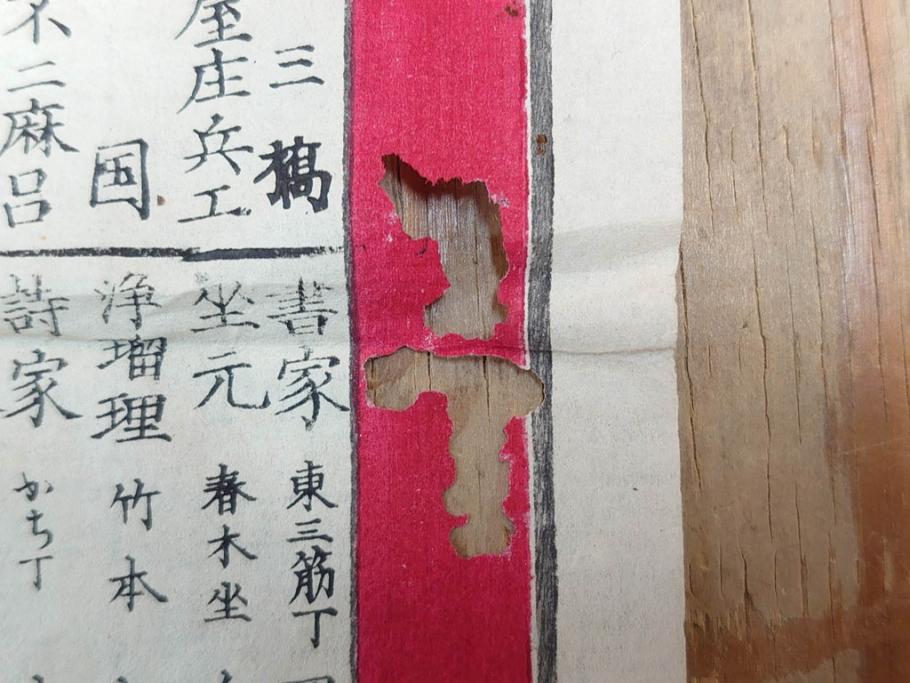 三槗
屋庄兵エ
国
不二麻呂
書家 東三筋丁
坐元 春木坐
浄瑠理 竹本
詩家 かち丁